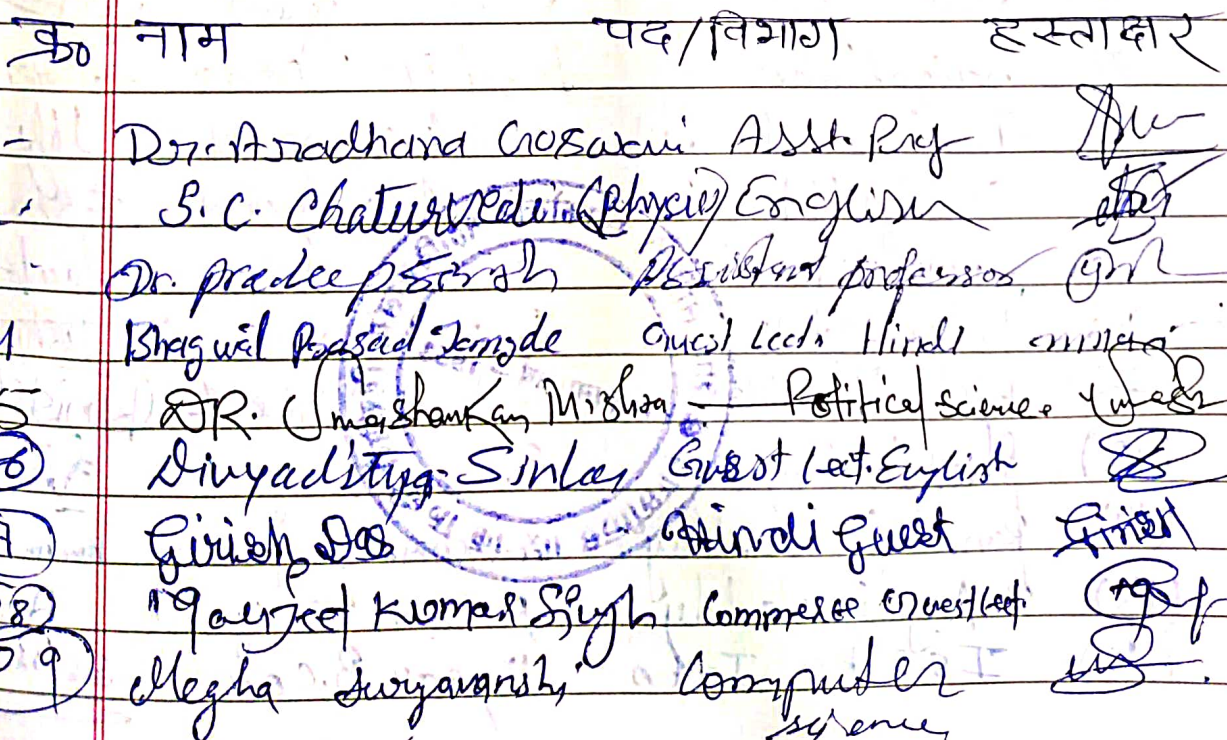 क्र० नाम पद/विभाग हस्ताक्षर
- Dr. Aradhana Goswami Asst. Prof
S. C. Chaturvedi (Physic) English
Dr. Pradeep Singh Assistant professor
Prasad Guest Lect. Hindi
5 DR. Umashankar Mishra — Political Science Umesh
6 Divyaditya Sinha Guest Lect. English
7 Girish Das Hindi Guest Girish
8 Kumar Singh Commerce Guest Lect.
9 Megha Suryavanshi Computer
science